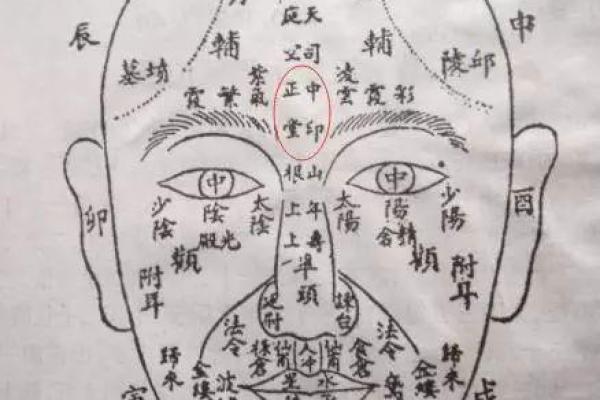 天庭
辰
申
輔
輔
司
墳墓
陵邱
紫氣
凌雲
繁霞
彩霞
中正
印堂
山根
中
中
卯
酉
少陰
陰
太陰
太陽
陽
少陽
光殿
精舍
年上
壽上
顴
顴
附耳
附耳
準頭
法令
法令
歸來
歸來
祿倉
食倉
仙
人中
仙
金縷
金縷
波
水星